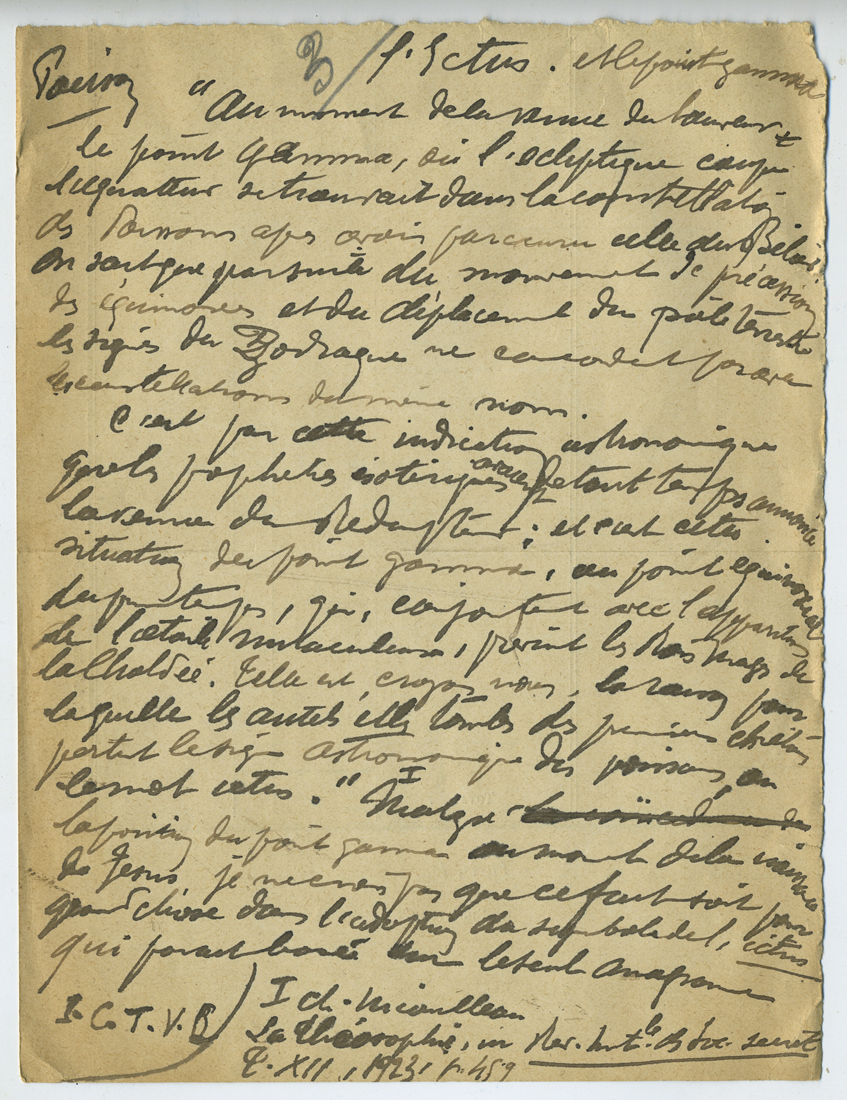 3/ l'Ictus. et le point gamma
Poisson
"Au moment de la venue du Sauveur
le point gamma, où l'écliptique coupe
l'équateur se trouvait dans la constellation
des Poissons après avoir parcouru celle du Bélier.
On sait que par suite du mouvement de précession
des équinoxes et du déplacement du pôle terrestre
les signes du Zodiaque ne concordent pas avec
les constellations du même nom.
C'est par cette indication astronomique
que les prophètes ésotériques avaient de tout temps annoncé
la venue du Rédempteur; et c'est cette
situation du point gamma, au point équinoxial
du printemps, qui, conjointement avec l'apparition
de l'étoile miraculeuse, prévint les Rois Mages de
la Chaldée. Telle est, croyons nous, la raison pour
laquelle les autels et les tombes des premiers chrétiens
portent le signe astronomique des poissons, ou
le mot ictus." I Malgré
la position du point gamma au moment de la naissance
de Jésus je ne crois pas que ce fait soit pour
grand chose dans l'adoption du symbole de l'ictus
qui parait basée sur le seul anagramme
I. C. T. V. S
I ch.
La Théosophie, in Rev. Int.le des Soc. secrètes
T. XII, 1923, p. 459